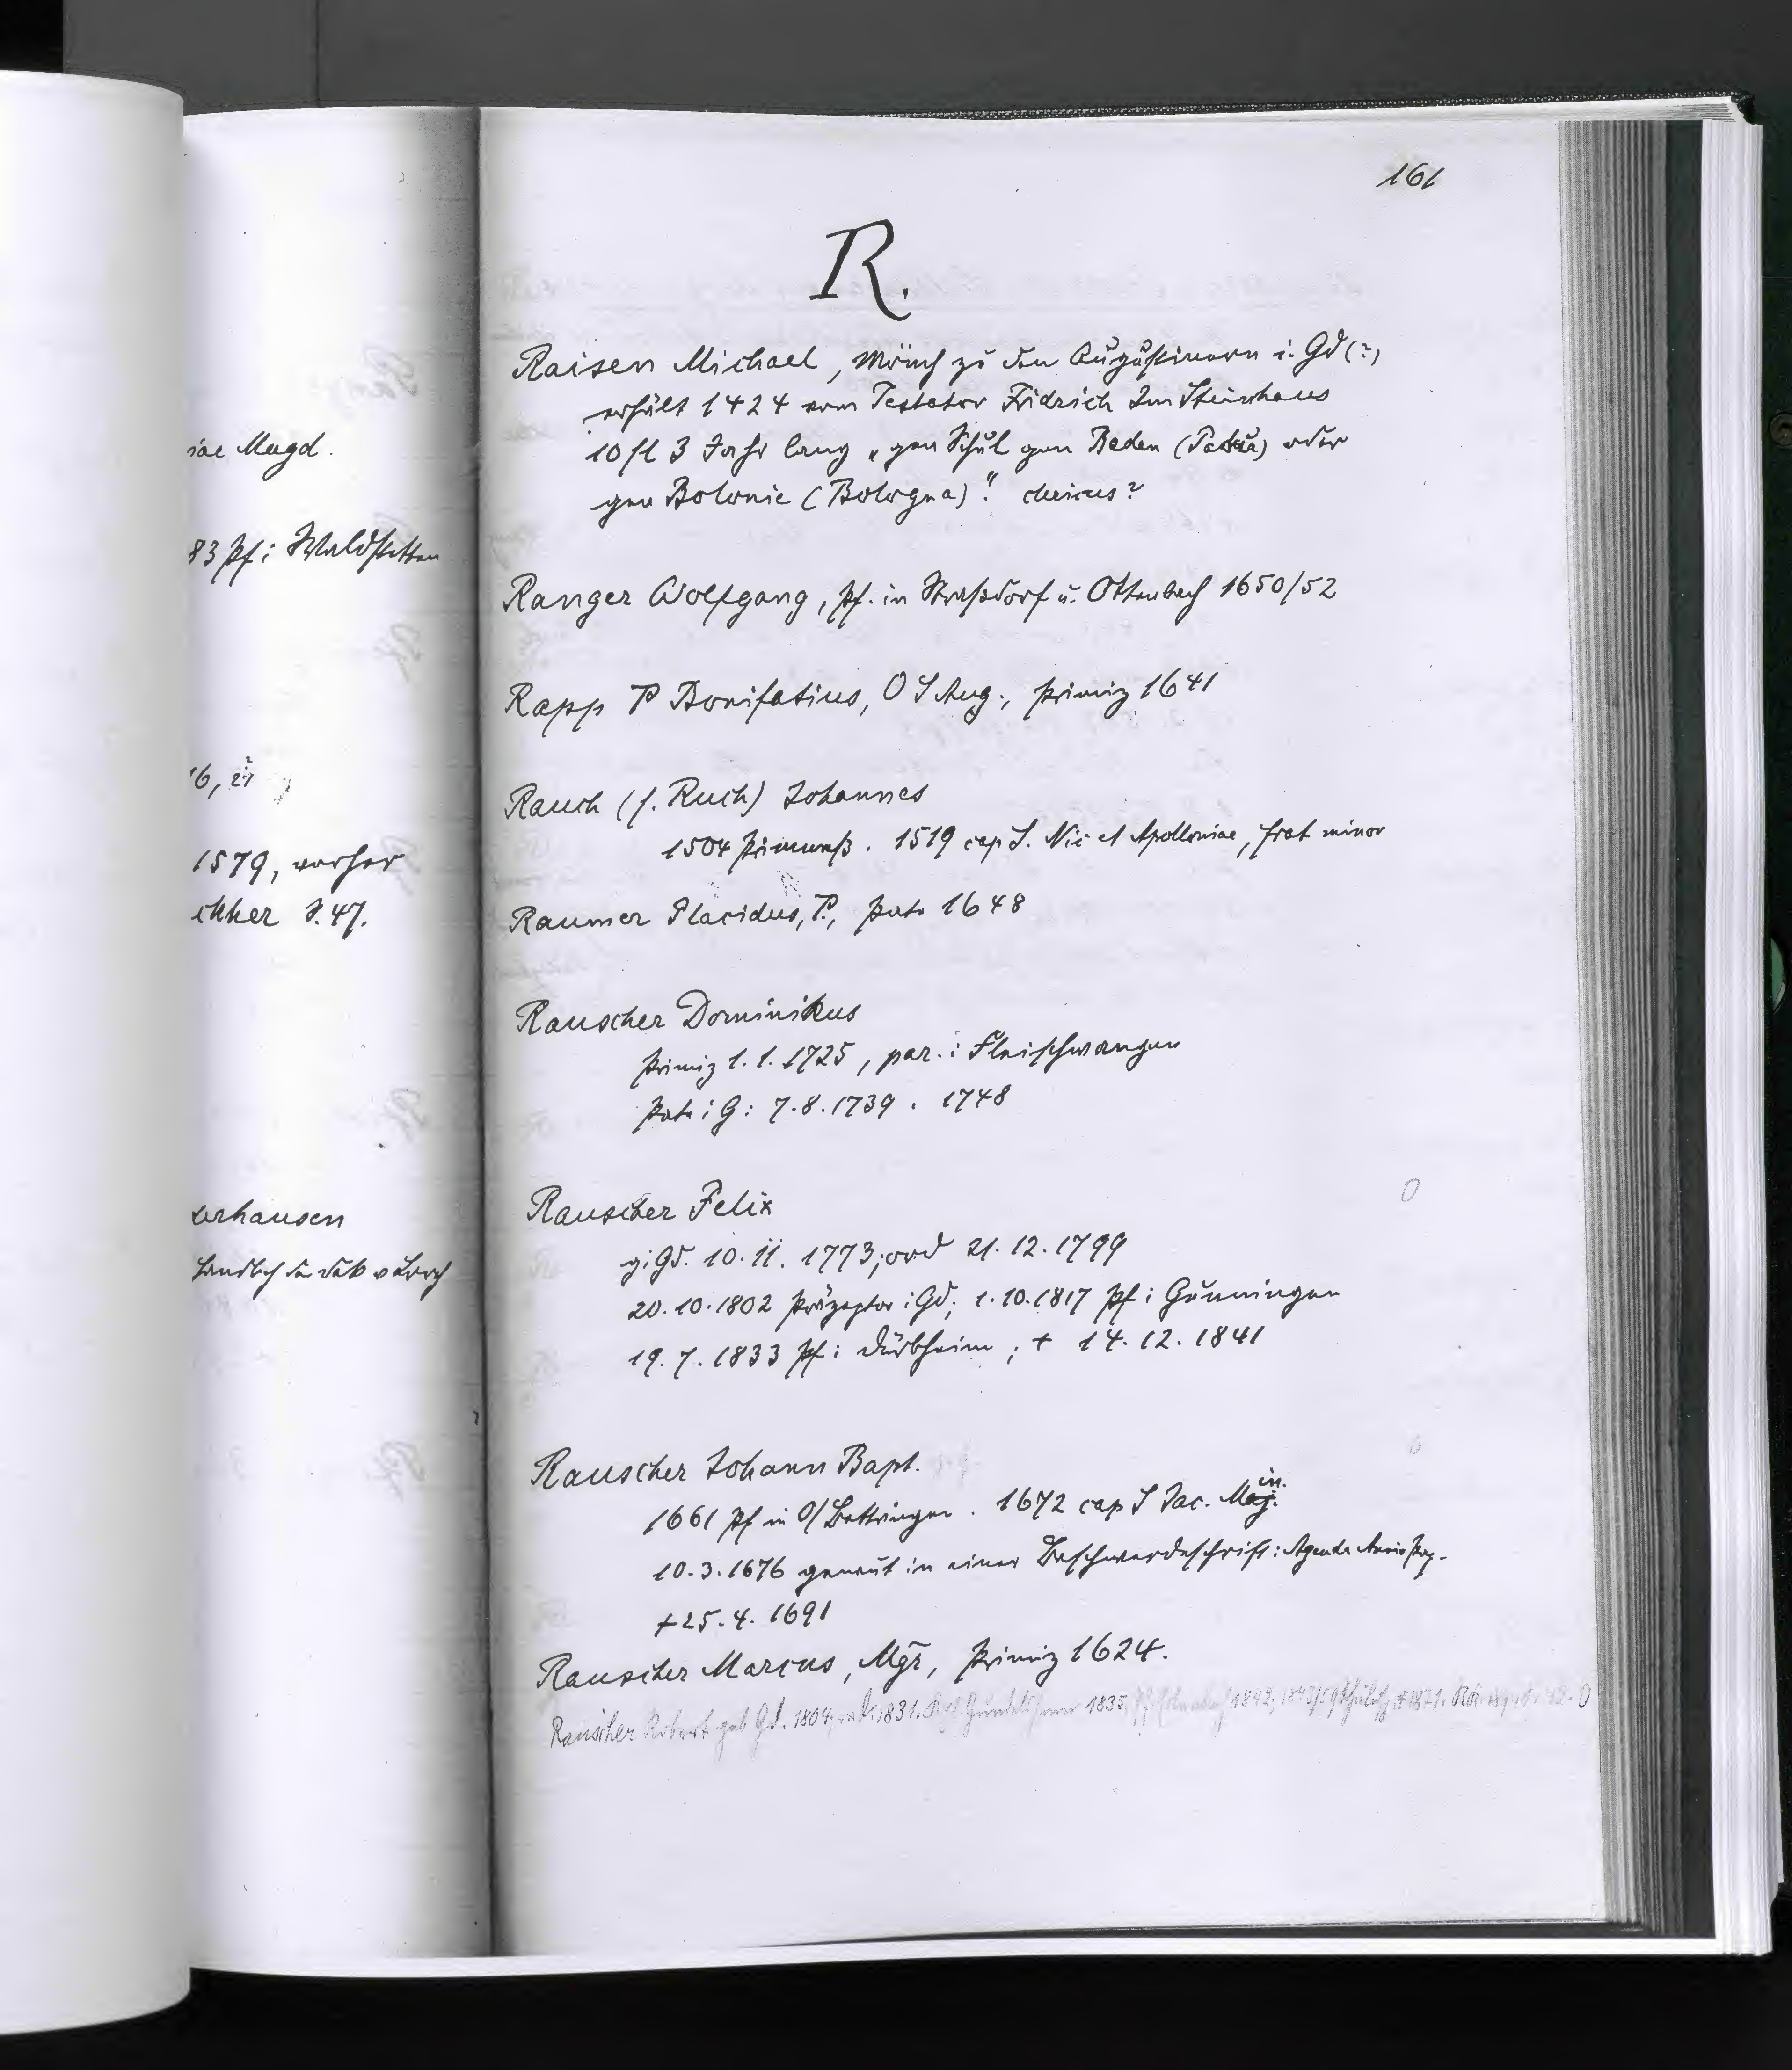 iae Magd.
83 Pf i Waldstetten
1579, vorher
S. 47.
erhausen
161
R.
Raisen Michael, Mönch zu den Augustinern i. Gd (?)
erhält 1424 vom Testator Fridrich Im Steinhaus
10 fl 3 Jahr lang „gen Schul gen Baden (Padua) oder
gen Bolonie (Bologna)". clericus?
Ranger Wolfgang, Pf. in Straßdorf u. Ottenbach 1650/52
Rapp P Bonifatius, O S Aug., Primiz 1641
Rauch (s. Ruch) Johannes
1504 Primmeß. 1519 cap S. Nic et Apolloniae, frat minor
Raumer Placidus, P., Pate 1648
Rauscher Dominikus
Primiz 1. 1. 1725, par. i Fleischwangen
Pate i G: 7. 8. 1739. 1748
Rauscher Felix
g. i Gd. 10. 11. 1773; ord 21. 12. 1799
20. 10. 1802 Präzeptor i Gd; 1. 10. 1817 Pf i Gunningen
19. 7. 1833 Pf i Dürbheim; + 14. 12. 1841
Rauscher Johann Bapt.
1661 Pf in O/Bettringen. 1672 cap S Jac. Min.
10. 3. 1676 genant in einer Beschwerdeschrift: Agenda
+ 25. 4. 1691
Rauscher Marcus, Mgr, Primiz 1624.
Rauscher Robert geb Gd. 1804, ord. 1831. Gundelsheim 1835, 1842, 1871.